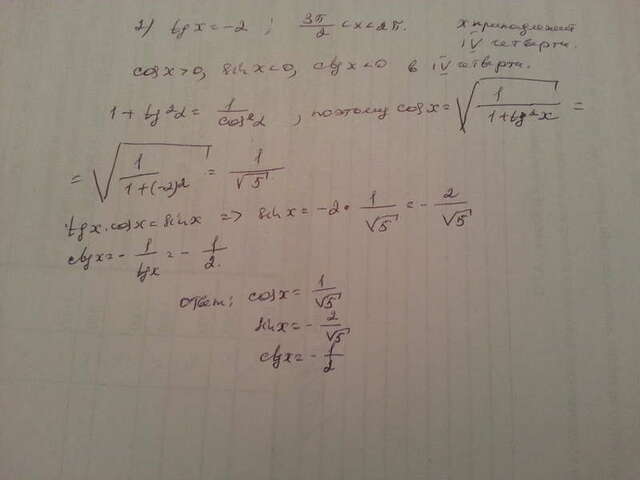 2) tgx = -2 ; 3π/2 < x < 2π. x принадлежит
IV четверти.
cosx>0, sinx<0, ctgx<0 в IV четверти.
1 + tg²α = 1/cos²α , поэтому cosx = √(1/(1+tg²x)) =
= √(1/(1+(-2)2)) = 1/√5
tgx·cosx = sinx => sinx = -2 · 1/√5 = - 2/√5
ctgx = - 1/tgx = - 1/2.
Ответ: cosx = 1/√5
sinx = - 2/√5
ctgx = - 1/2